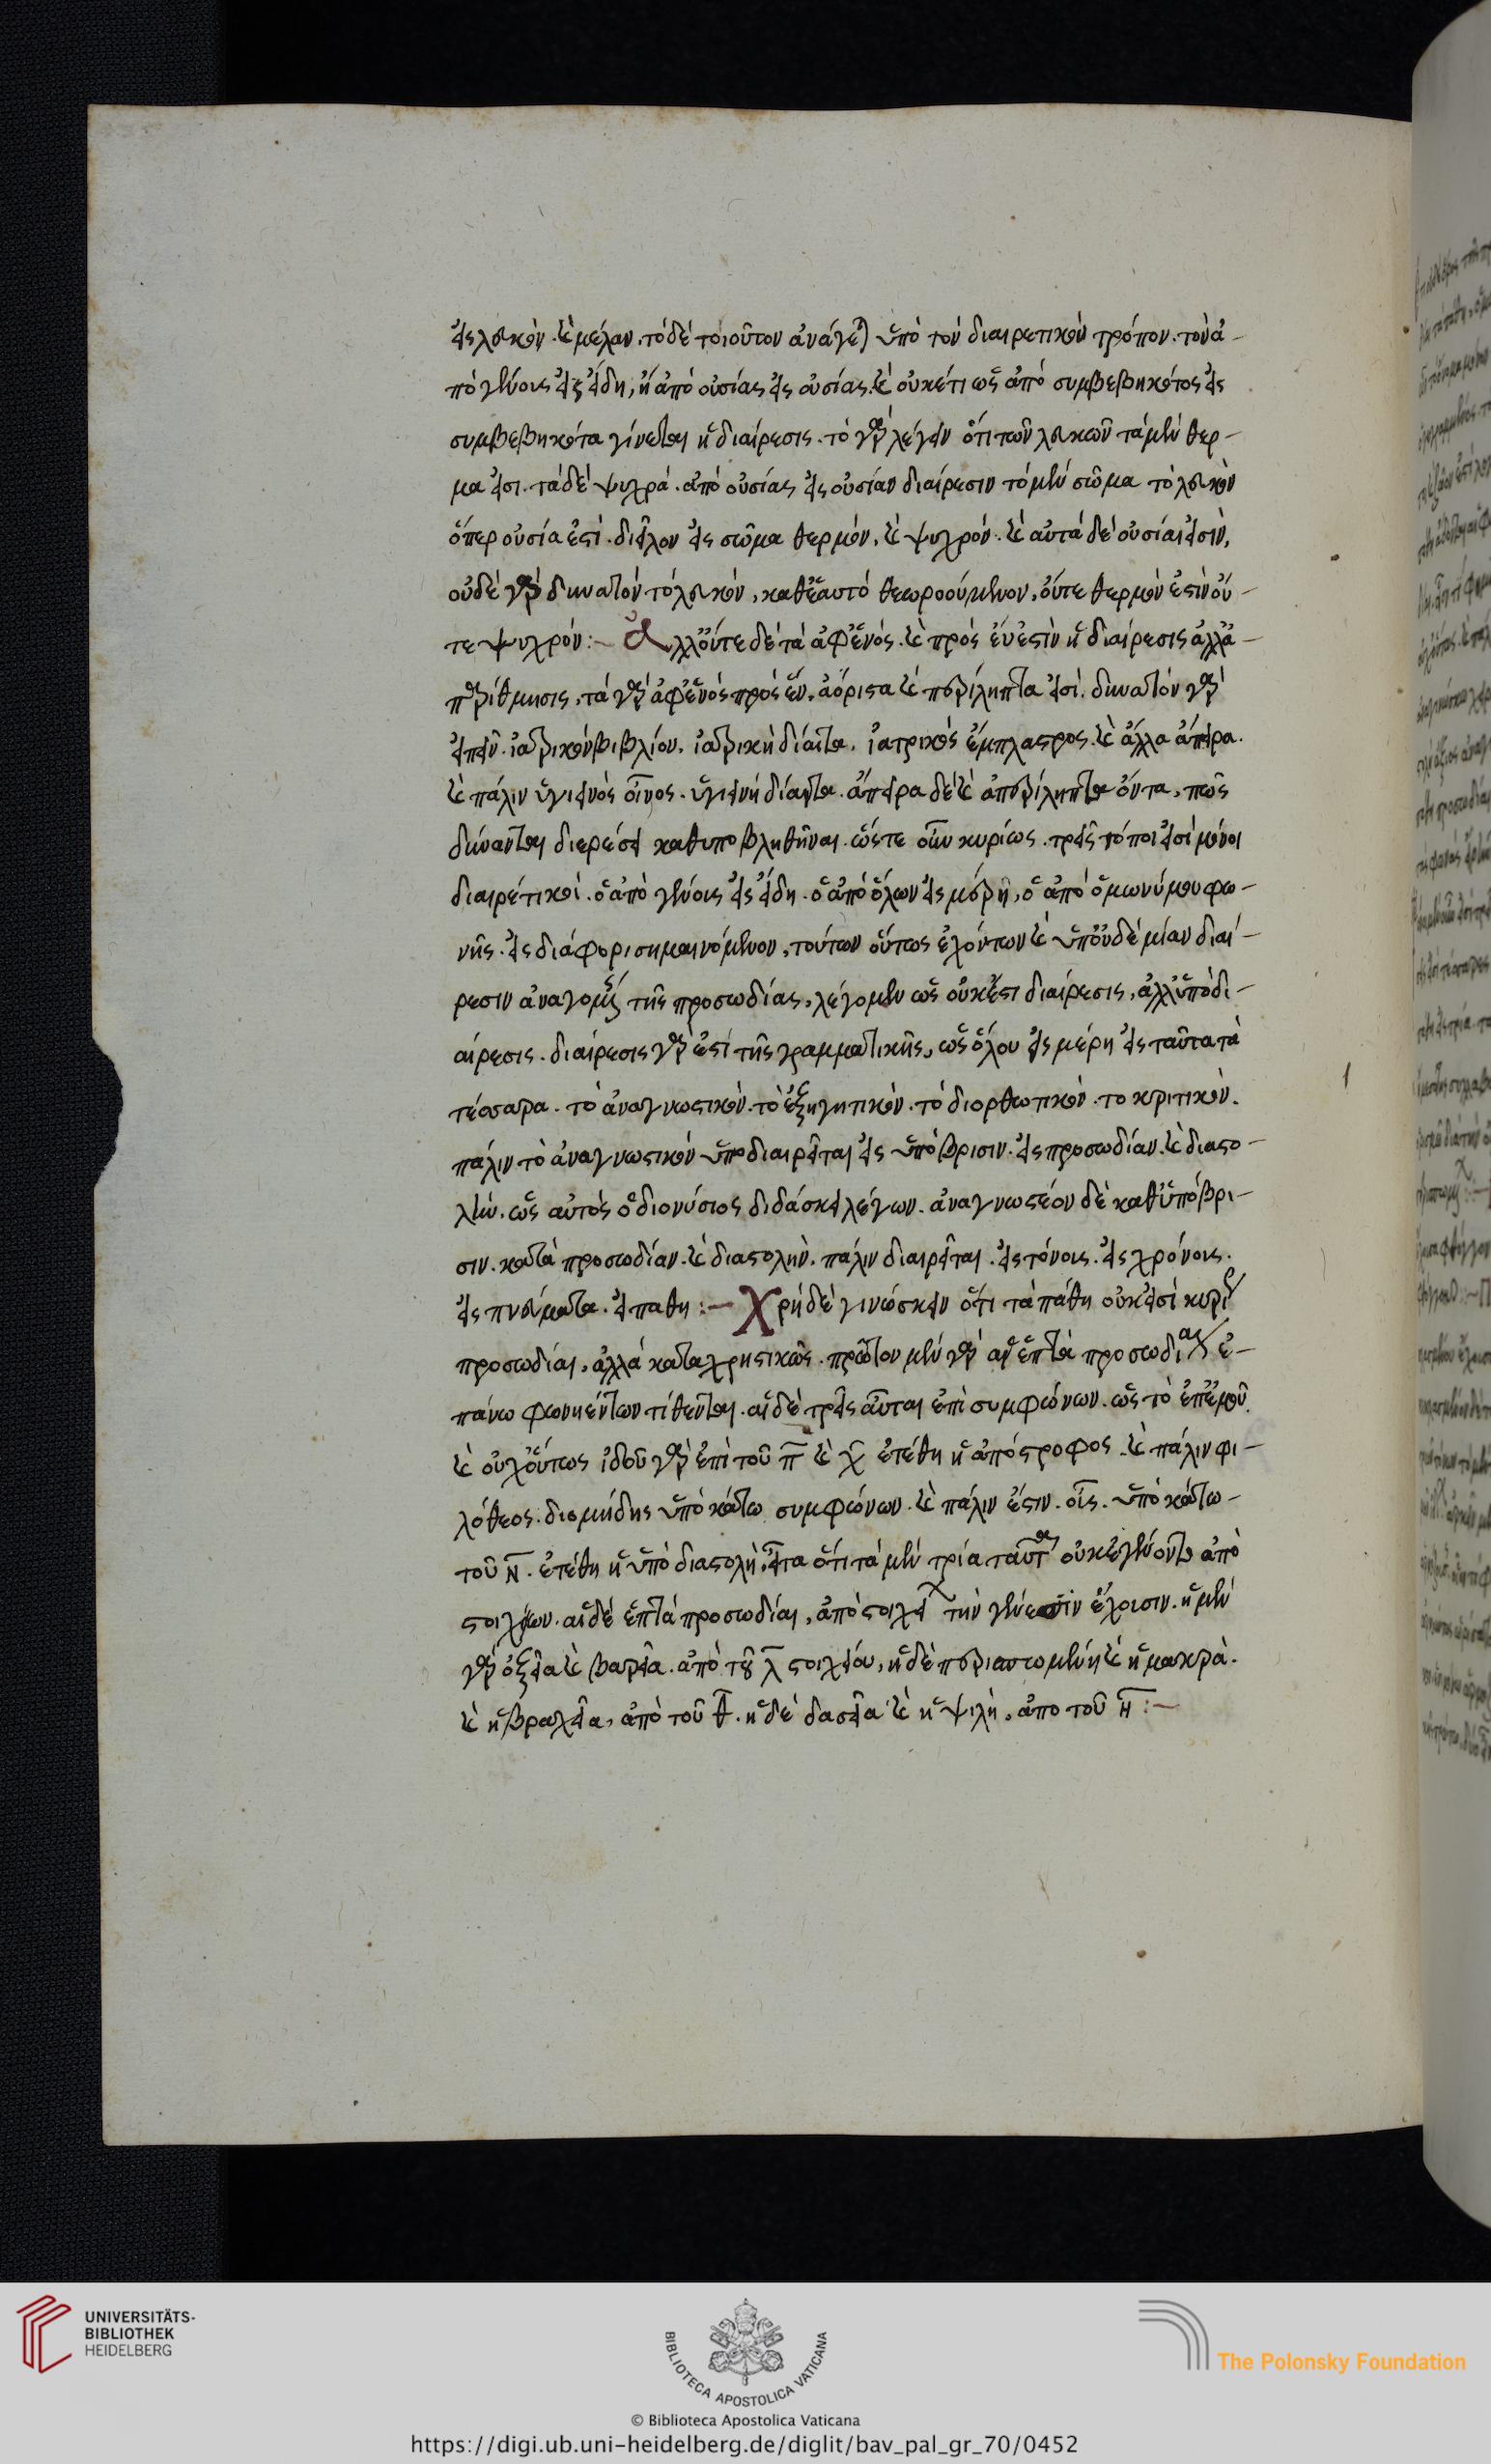 εἰς λευκὸν. καὶ μέλαν. τὸ δὲ τοιοῦτον ἀνάγεται ὑπὸ τὸν διαιρετικὸν τρόπον. τὸν ἀ-
πὸ γένους εἰς εἴδη, ἢ ἀπὸ οὐσίας εἰς οὐσίας. καὶ οὐκέτι ὡς ἀπὸ συμβεβηκότος εἰς
συμβεβηκότα γίνεται ἡ διαίρεσις. τὸ γὰρ λέγειν ὅτι τῶν λευκῶν τὰ μὲν θερ-
μα εἰσι. τὰ δὲ ψυχρά. ἀπὸ οὐσίας εἰς οὐσίαν διαίρεσιν τὸ μὲν σῶμα τὸ λευκὸν
ὅπερ οὐσία ἐστὶ. διεῖλον εἰς σῶμα θερμὸν. καὶ ψυχρόν. καὶ αὐτὰ δὲ οὐσίαι εἰσὶν,
οὐδὲ γὰρ δυνατὸν τὸ λευκὸν, καθ' ἑαυτό θεωροούμενον, οὔτε θερμὸν ἐστὶν οὔ-
τε ψυχρόν:- Ἀλλ' οὔτε δὲ τὰ ἀφ' ἑνὸς. καὶ πρὸς ἕν ἐστὶν ἡ διαίρεσις ἀλλ' ἀ-
παρίθμησις, τὰ γὰρ ἀφ' ἑνὸς πρὸς ἕν. ἀόριστα καὶ περίληπτα εἰσὶ. δυνατὸν γὰρ
εἰπεῖν. ἰατρικὸν βιβλίον. ἰατρικὴ δίαιτα. ἰατρικὸς ἔμπλαστρος. καὶ ἄλλα ἄπειρα.
καὶ πάλιν ὑγιεινὸς οἶνος. ὑγιεινὴ δίαιτα. ἄπειρα δὲ καὶ ἀπερίληπτα ὄντα, πῶς
δύνανται διερέσει καθυποβληθῆναι. ὥστε οὖν κυρίως. τρεῖς τόποι εἰσὶ μόνοι
διαιρέτικοὶ. ὁ ἀπὸ γένους εἰς εἴδη. ὁ ἀπὸ ὅλων εἰς μέρη, ὁ ἀπὸ ὁμωνύμου φω-
νῆς. εἰς διάφορι σημαινόμενον, τούτων οὕτως ἐχόντων καὶ ὑπ' οὐδὲ μίαν διαί-
ρεσιν ἀναγομένης τῆς προσωδίας, λέγομεν ὡς οὐκ ἔστι διαίρεσις, ἀλλ' ὑποδι-
αίρεσις. διαίρεσις γὰρ ἐστὶ τῆς γραμματικῆς, ὡς ὅλου εἰς μέρη εἰς ταῦτα τὰ
τέσσαρα. τὸ ἀναγνωστικὸν. τὸ ἐξηγητικὸν. τὸ διορθωτικὸν. το κριτικὸν.
πάλιν τὸ ἀναγνωστικὸν ὑποδιαιρεῖται εἰς ὑπόκρισιν. εἰς προσωδίαν. καὶ διαστο-
λὴν. ὡς αὐτὸς ὁ διονύσιος διδάσκει λέγων. ἀναγνωστέον δὲ καθ' ὑπόκρι-
σιν. κατὰ προσωδίαν. καὶ διαστολὴν. πάλιν διαιρεῖται. εἰς τόνους. εἰς χρόνους.
εἰς πνεύματα. εἰ παθη:- Χρὴ δὲ γινώσκειν ὅτι τὰ πάθη οὐκ εἰσὶ κυρίως
προσωδίαι, ἀλλὰ καταχρηστικῶς. πρῶτον μὲν γὰρ αἱ ἑπτὰ προσωδίαι ἐ-
πάνω φωνηέντων τίθενται. αἱ δὲ τρεῖς αὗται ἐπὶ συμφώνων. ὡς τὸ ἐπ' ἐμοῦ.
καὶ οὐχ οὕτως ἰδοῦ γὰρ ἐπὶ τοῦ π καὶ χ ἐτέθη ἡ ἀπόστροφος. καὶ πάλιν φι-
λόθεος. διομήδης ὑπὸ κάτω συμφώνων. καὶ πάλιν ἔστιν. οἷς. ὑπὸ κάτω-
τοῦ ν. ἐτέθη ἡ ὑπὸ διαστολὴ. εἶτα ὅτι τὰ μὲν τρία ταῦτα οὐκ ἐγένοντο ἀπὸ
στοιχείων. αἱ δὲ ἑπτὰ προσωδίαι, ἀπὸ στοιχείων τὴν γένεσιν ἔχουσιν. ἡ μὲν
γὰρ ὀξεῖα καὶ βαρεῖα. ἀπὸ τοῦ λ στοιχείου, ἡ δὲ περισπωμένη καὶ ἡ μακρὰ.
καὶ ἡ βραχεῖα, ἀπὸ τοῦ θ. ἡ δὲ δασεῖα καὶ ἡ ψιλὴ. ἀπο τοῦ η:-
UNIVERSITÄTS-
BIBLIOTHEK
HEIDELBERG
BIBLIOTECA APOSTOLICA VATICANA
The Polonsky Foundation
© Biblioteca Apostolica Vaticana
https://digi.ub.uni-heidelberg.de/diglit/bav_pal_gr_70/0452